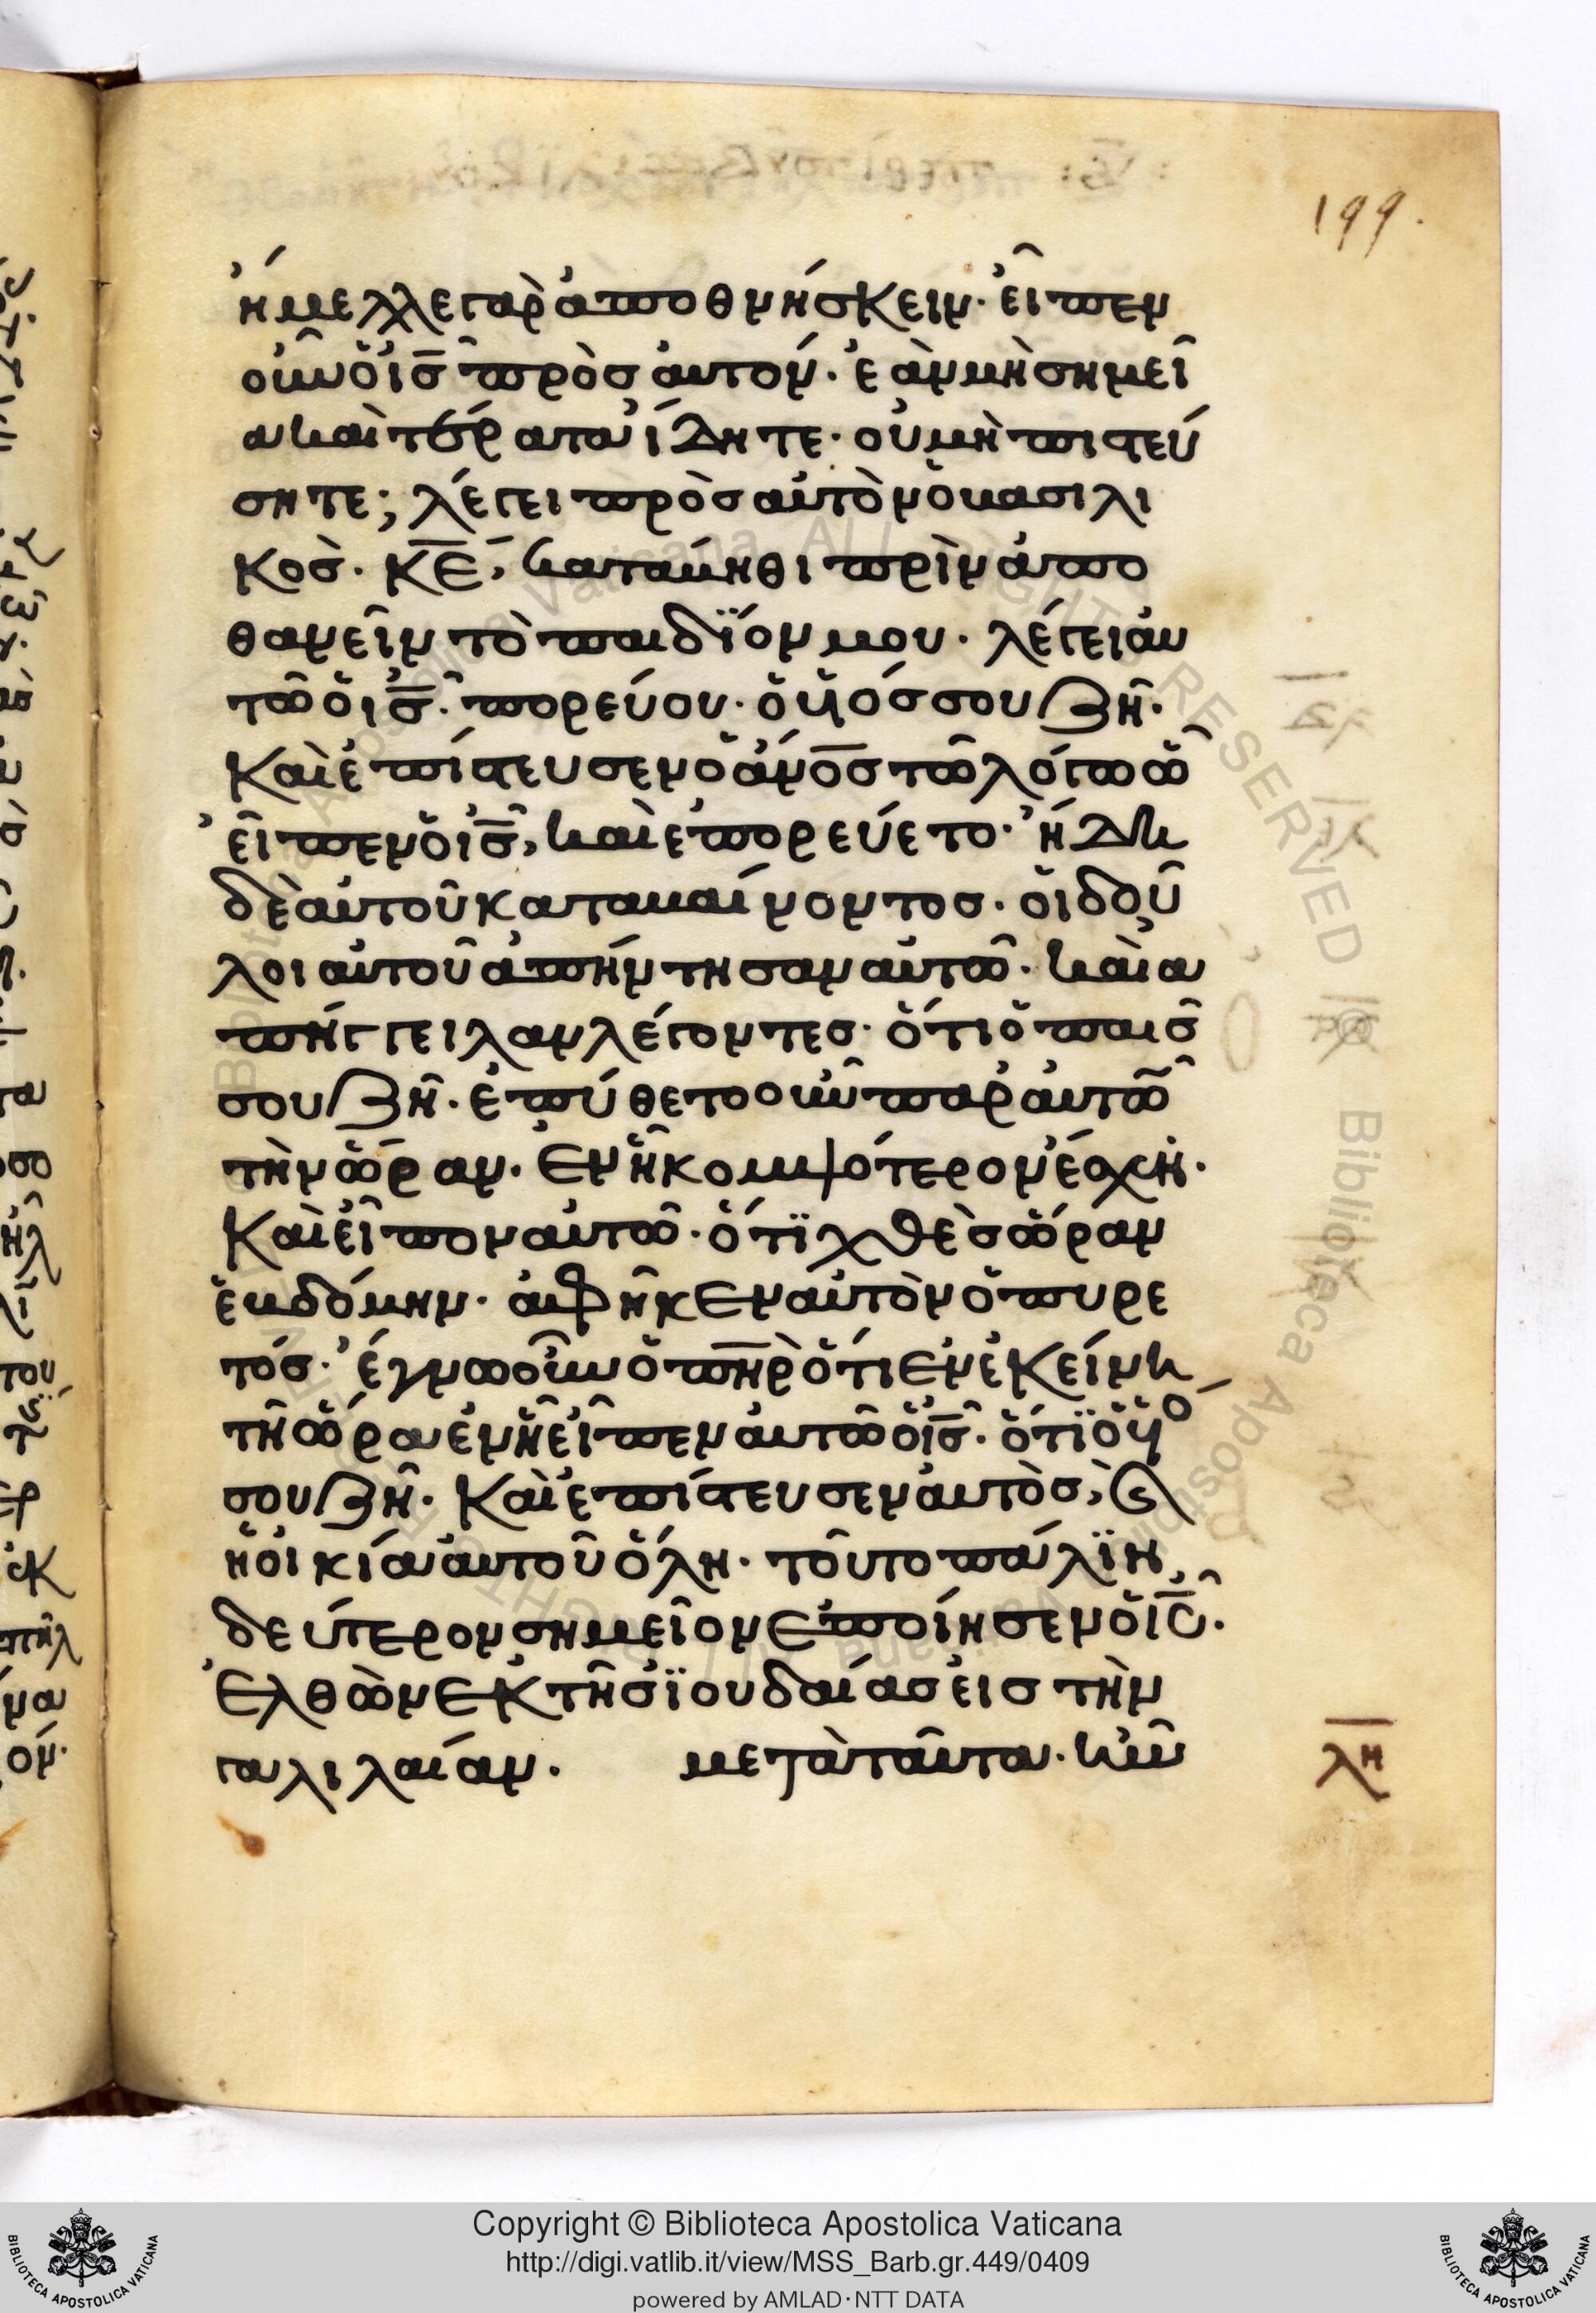 199.
ἤμελλε γὰρ ἀποθνήσκειν· εἶπεν
οὖν ὁ ις̅ πρὸς αὐτόν· ἐὰν μὴ σημεῖ
α καὶ τέρατα ἴδητε· οὐ μὴ πιστεύ
σητε; λέγει πρὸς αὐτὸν ὁ βασιλι
κὸς· κε̅, κατάβηθι πρὶν ἀπο
θανεῖν τὸ παιδΐον μου· λέγει αὐ
τῶ ὁ ις̅· πορεύου· ὁ υἱός σου ζῆ·
Καὶ ἐπίστευσεν ὁ ἄνο̅ς τῶ λόγω ὧ
εἶπεν ὁ ις̅, καὶ ἐπορεύετο· ἤδη
δὲ αὐτοῦ καταβαίνοντος· οἱ δοῦ
λοι αὐτοῦ ἀπήντησαν αὐτῶ· καὶ ἀ
πήγγειλαν λέγοντες· ὅτι ὁ παῖς
σου ζῆ· ἐπύθετο οὖν παρ αὐτῶ
τὴν ὥραν· ἐν ἧ κομψότερον ἔσχε·
Καὶ εἶπον αὐτῶ· ὅτϊ χθὲς ὥραν
ἑβδόμην· ἀφῆκεν αὐτὸν ὁ πυρε
τός· ἔγνω οὖν ὁ πη̅ρ ὅτι ἐν ἐκείνη
τῆ ὥρα ἐν ἧ εἶπεν αὐτῶ ὁ ις̅· ὅτϊ ὁ υἱὸ
σου ζῆ· Καὶ ἐπίστευσεν αὐτὸς, καὶ
ἡ οἰκία αὐτοῦ ὅλη· τοῦτο πάλϊν
δεύτερον σημεῖον ἐποίησεν ὁ ις̅·
ἐλθὼν ἐκ τῆς ϊουδαίας εἰς τὴν
γαλιλαίαν. μετὰ ταῦτα· ἦν
λη
Copyright © Biblioteca Apostolica Vaticana
http://digi.vatlib.it/view/MSS_Barb.gr.449/0409
powered by AMLAD·NTT DATA